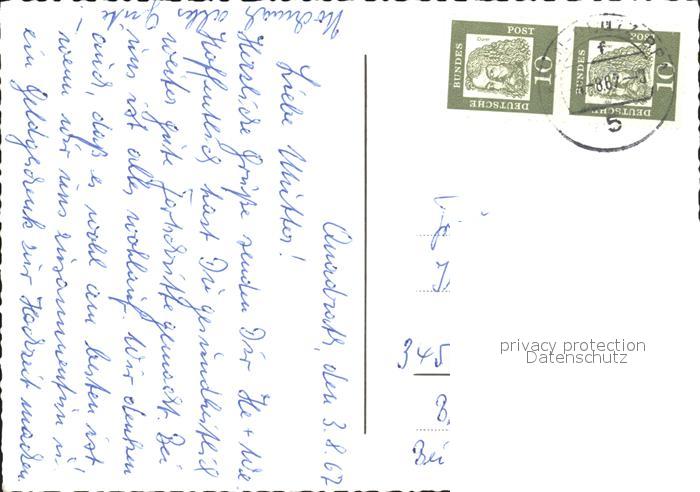 Quadrath, den 3.8.67
Liebe Mutter!
Herzliche Grüße senden Dir He + Wie
Hoffentlich hast Du gesundheitlich
weiter gute Fortschritte gemacht. Bei
uns ist alles wohlauf. Wir denken
auch, daß es wohl am besten ist
– wenn wir uns zusammentun u.
ein Geldgeschenk zur Hochzeit machen.
Nochmals
alles
Gute
DEUTSCHE
BUNDES
POST
10
DEUTSCHE
BUNDES
POST
10
f
8.67
5
345
Bei
privacy protection
Datenschutz